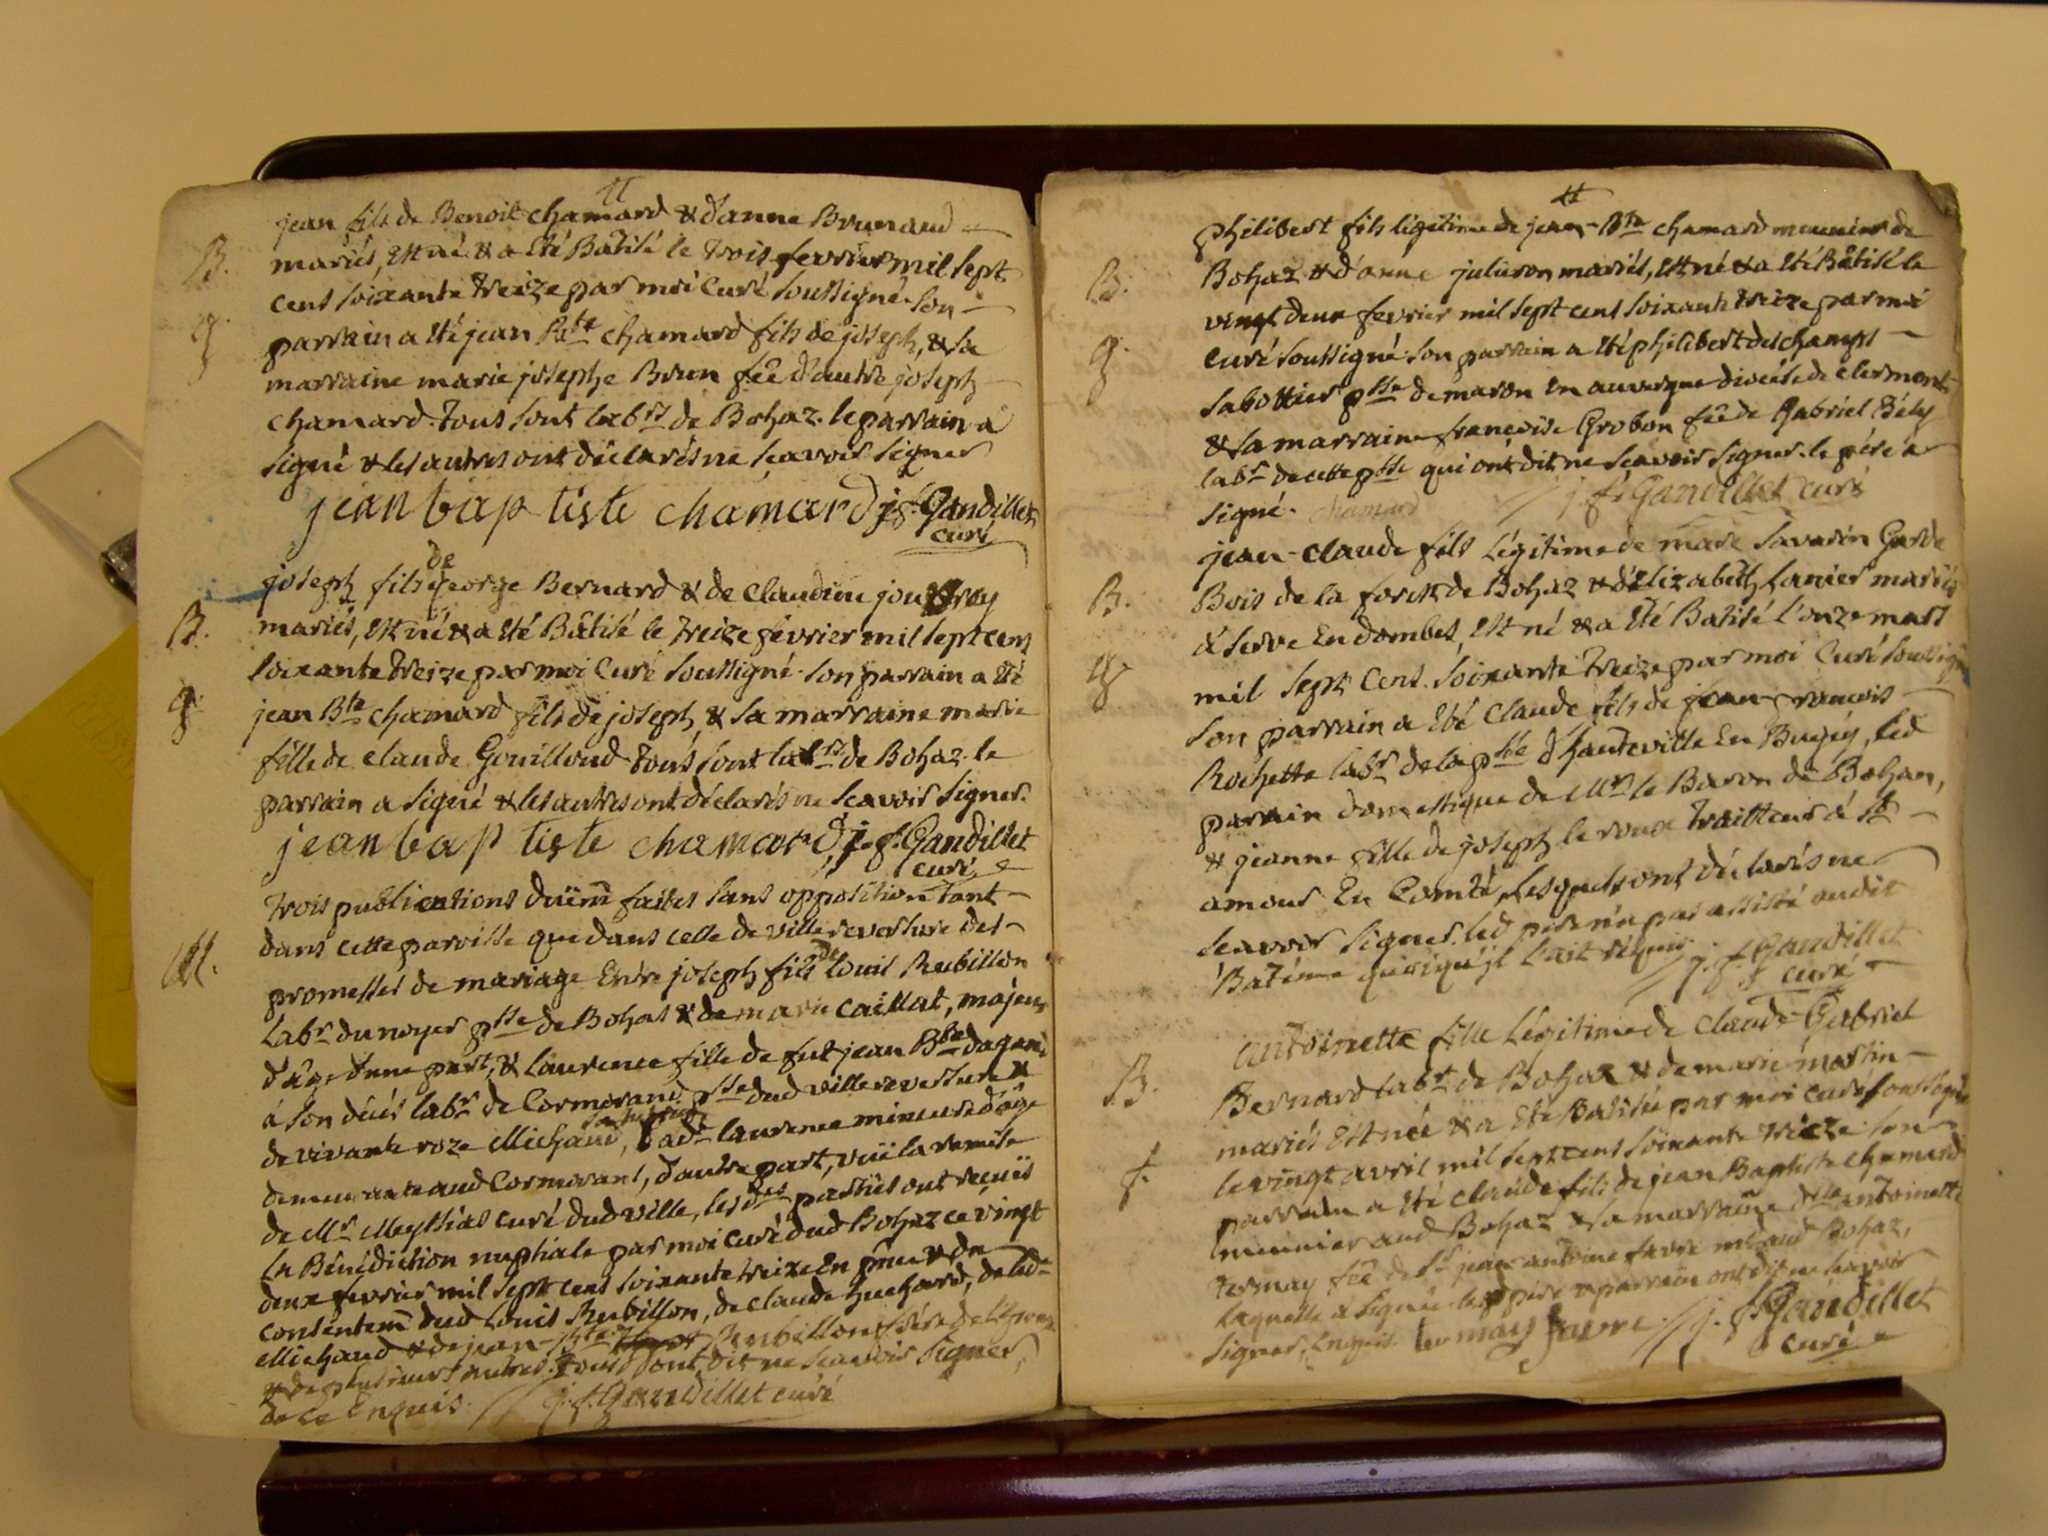 jean fils de Benoit chamard & d'anne Brunaud
B. mariés, est né & a eté Bâtisé le trois fevrier mil sept
cent soixante treize par moi Curé soussigné. son
g. parrain a eté jean Bte chamard fils de joseph, & sa
marraine marie josephe Brun fẽe d'autre joseph
chamard. tous sont labrs de Bohaz. le parrain a
signé & les autres ont déclarés ne sçavoir signer
jean baptiste chamard j. f. Gandillet
curé
joseph fils de george Bernard & de claudine
B. mariés, est né & a eté Bâtisé le treize fevrier mil sept cent
soixante treize par moi Curé soussigné. son parrain a eté
g. jean Bte chamard fils de joseph, & sa marraine marie
fille de claude Gouilloud tous sont labrs de Bohaz. le
parrain a signé & les autres ont déclarés ne scavoir signer.
jean baptiste chamard j. f. Gandillet
curé
trois publications duëm̃ faites sans opposition tant
dans cette paroisse que dans celle de villereversure des
M. promesses de mariage Entre joseph fils de louis Rubillon
labr du noyer psse de Bohas & de marie caillat, majeur
d'âge d'une part, & laurence fille de fut jean Bte
à son décès labr de Cormorand psse dud villereversure &
de vivante roze Michaud, ladte laurence mineure d'âge
demeurante aud Cormorant, d'autre part, vüe la remise
de Mr Meyssias curé dud ville, lesdtes parties ont reçuës
la Bénédiction nuptiale par moi curé dud Bohaz ce vingt
deux fevrier mil sept cent soixante treize En pñce & du
consentem̃ dud louis Rubillon, de claude huchard, de ladte
Michaud & de jean-Bte Rubillon frère de l'époux
& de plusieurs autres. tous ont dit ne scavoir signer,
de ce Enquis. j. f. Gandillet curé
philibert fils légitime de jean-Bte chamard meunier de
B. Bohaz & d'anne juliron mariés, est né & a eté Bâtisé le
vingt deux fevrier mil sept cent soixante treize par moi
g. Curé soussigné son parrain a eté philibert deschamps
sabottier psse de maron En auvergne diocése de clermont
& sa marraine françoise Grobon fẽe de Gabriel Bély
labr de cette psse qui ont dit ne scavoir signer. le pére a
signé. chamard j. f. Gandillet curé
jean-claude fils légitime de marc savarin Garde
B. Bois de la forest de Bohaz & d'Elizabeth lanier mariés
à serve En dombes, est né & a eté Batisé l'onze mars
g. mil sept cent soixante treize par moi Curé soussigné
son parrain a eté Claude fils de jean-francois
Rochette labr de la psse d'hauteville En Bugey, led
parrain domestique de Mr le Baron de Bohan,
& jeanne fille de joseph le roux traitteur à St
amour En Comté, lesquels ont déclarés ne
scavoir signer. led pére n'a pas assisté audit
Batême quoiqu'jl l'ait requis. j. f. Gandillet
curé
antoinette fille légitime de claude-Gabriel
B. Bernard labr de Bohaz & de marie martin
mariés est née & a eté Batisée par moi curé soussigné
f. le vingt avril mil sept cent soixante treize. son
parrain a eté claude fils de jean Baptiste chamard
meunier aud Bohaz & sa marraine dlle antoinette
termay fẽe de sr jean antoine favre md aud Bohaz,
laquelle a signée. les pére & parrain ont dit ne scavoir
signer, Enquis. termay favre j. f. Gandillet
curé